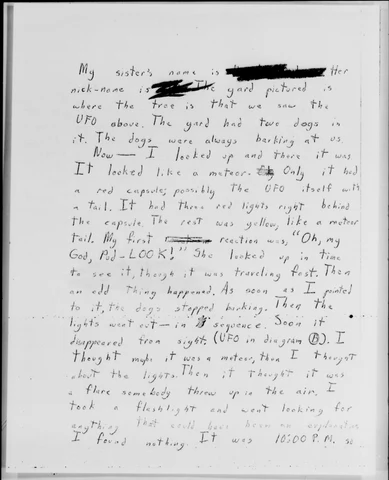 My sister's name is Her
nick-name is The yard pictured is
where the tree is that we saw the
UFO above. The yard had two dogs in
it. The dogs were always barking at us.
Now — I looked up and there it was.
It looked like a meteor. Only it had
a red capsule; possibly the UFO itself with
a tail. It had three red lights right behind
the capsule. The rest was yellow, like a meteor
tail. My first reaction was, "Oh, my
God, LOOK!" She looked up in time
to see it, though it was traveling fast. Then
an odd thing happened. As soon as I pointed
to it, the dogs stopped barking. Then the
lights went out — in sequence. Soon it
disappeared from sight. (UFO in diagram B). I
thought maybe it was a meteor, then I thought
about the lights. Then it thought it was
a flare somebody threw up in the air. I
took a flashlight and went looking for
anything that could have been an explanation
I found nothing. It was 10:00 P.M. so